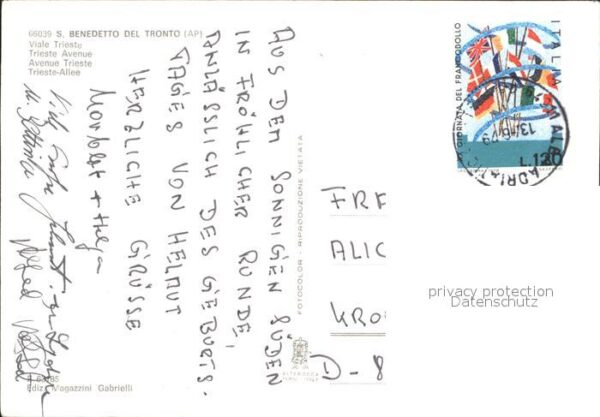 66039 S. BENEDETTO DEL TRONTO (AP)
Viale Trieste
Trieste Avenue
Avenue Trieste
Trieste-Allee
AUS DEN SONNIGEN SÜDEN
IN FRÖHLICHER RUNDE,
ANLÄSSLICH DES GEBURTS-
TAGES VON HELMUT
HERZLICHE GRÜSSE
+ Helga
Ediz. Magazzini Gabrielli
FOTOCOLOR - RIPRODUZIONE VIETATA
GIORNATA DEL FRANCOBOLLO
ITALIA
L.120
ADRIATIC
FRE
ALIC
KRO
D-8
privacy protection
Datenschutz